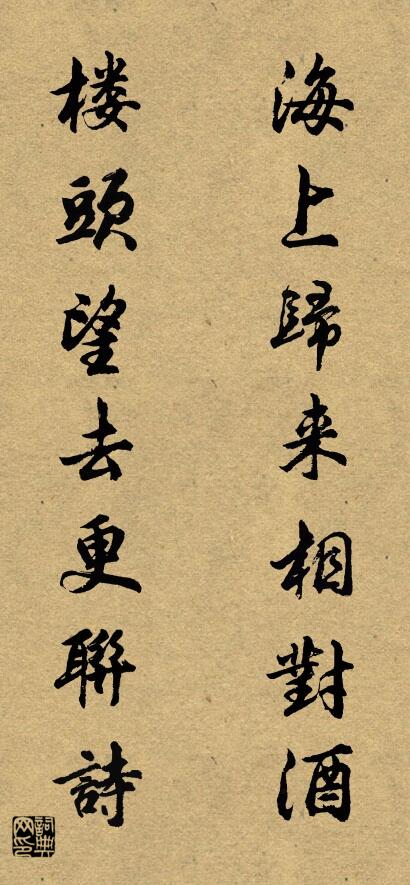 海上歸来相對酒
楼頭望去更聯詩
詞典网印